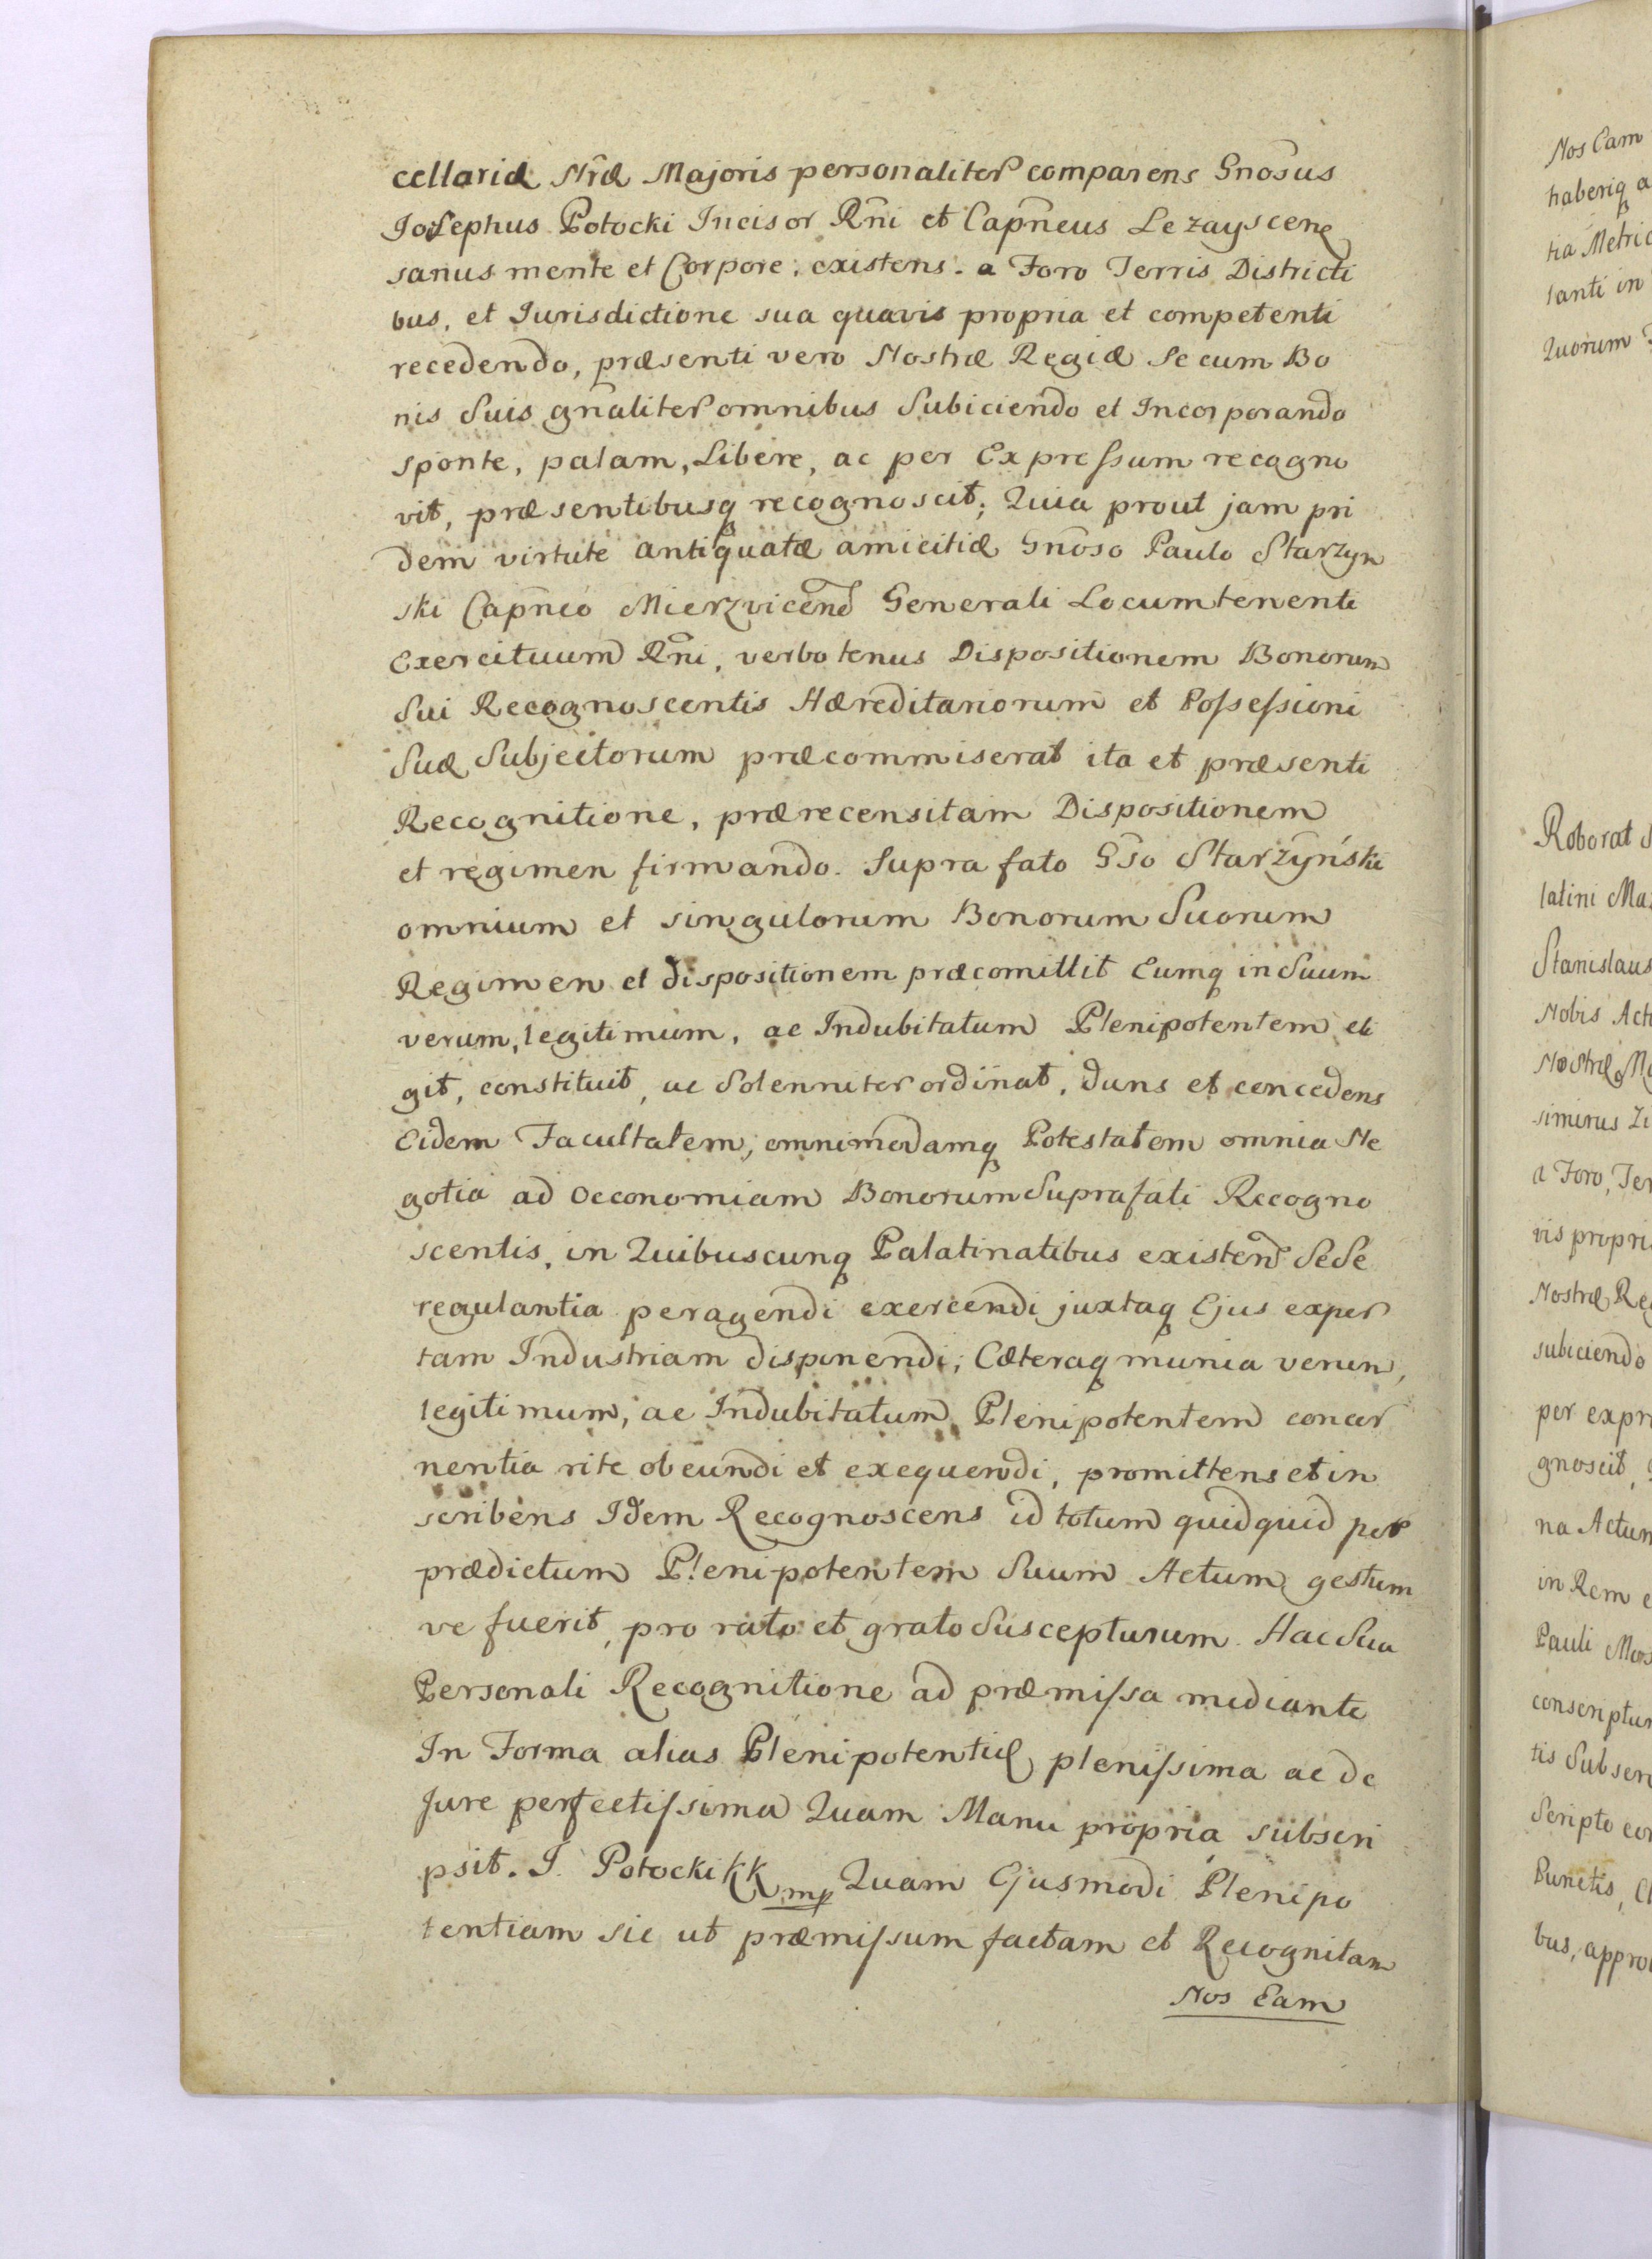 cellariæ Nræ Majoris personaliter comparens Gnosus
Josephus Potocki Incisor Rni et Capneus Lezayscen
sanus mente et Corpore existens. a Foro Terris Districti
bus, et Jurisdictione sua quavis propria et competenti
recedendo, præsenti vero Nostræ Regiæ Se cum Bo
nis Suis gnaliter omnibus Subiciendo et Incorporando
sponte, palam, Libere, ac per Expressum recogno
vit, præsentibusq recognoscit; Quia prout jam pri
dem virtute antiquatæ amicitiæ Gnoso Paulo Starzyn
ski Capneo Mierzvicen Generali Locumtenenti
Exercituum Rni, verbotenus Dispositionem Bonorum
Sui Recognoscentis Hæreditariorum et Possessioni
Suæ Subjectorum præcommiserat ita et præsenti
Recognitione, prærecensitam Dispositionem
et regimen firmando. Supra fato Gso Starzyński
omnium et singulorum Bonorum Suorum
Regimen et dispositionem præcomittit Eumq in Suum
verum, legitimum, ac Indubitatum Plenipotentem eli
git, constituit, ac Solenniter ordinat, dans et concedens
Eidem Facultatem, omnimodamq Potestatem omnia Ne
gotia ad Oeconomiam Bonorum Suprafati Recogno
scentis, in Quibuscunq Palatinatibus existen SeSe
regulantia peragendi exercendi juxtaq Ejus exper
tam Industriam disponendi; Cæteraq munia verum,
legitimum, ac Indubitatum Plenipotentem concer
nentia rite obeundi et exequendi, promittens et in
scribens Idem Recognoscens id totum quidquid per
prædictum Plenipotentem Suum Actum gestum
ve fuerit, pro rato et grato Suscepturum. Hac Sua
Personali Recognitione ad præmissa mediante
In Forma alias Plenipotentiæ plenissima ac de
Jure perfectissima Quam Manu propria subscri
psit. J. Potocki KK mp Quam Ejusmodi Plenipo
tentiam sic ut præmissum factam et Recognitam
Nos Eam
Nos Eam
haberiq a
tia Metric
lanti in
Quorum
Roborat S
latini Maz
Stanislaus
Nobis Act
Nostræ Ma
simirus
a Foro, Ter
vis propri
Nostræ Reg
subiciendo
per expre
gnoscit,
na Actum
in Rem e
Pauli
conscriptum
tis Subscri
Scripto con
Punctis, Cl
bus, appro